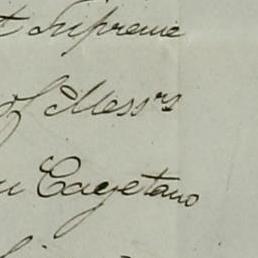 t Supreme
of Mess^rs
Cayetano